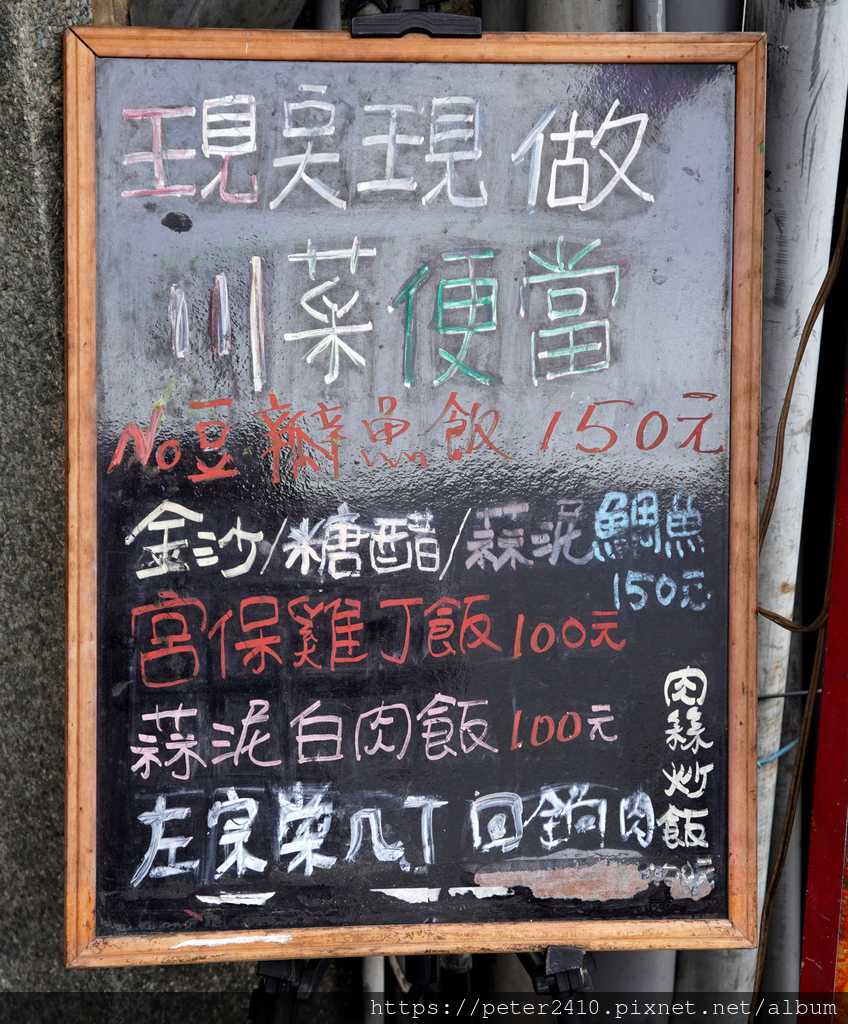 現点現做
川菜便當
No豆瓣魚飯 150元
金沙/糖醋/蒜泥鯛魚
150元
宮保雞丁飯100元
蒜泥白肉飯100元
左宗棠几丁 回鍋肉
肉絲炒飯
https://peter2410.pixnet.net/album